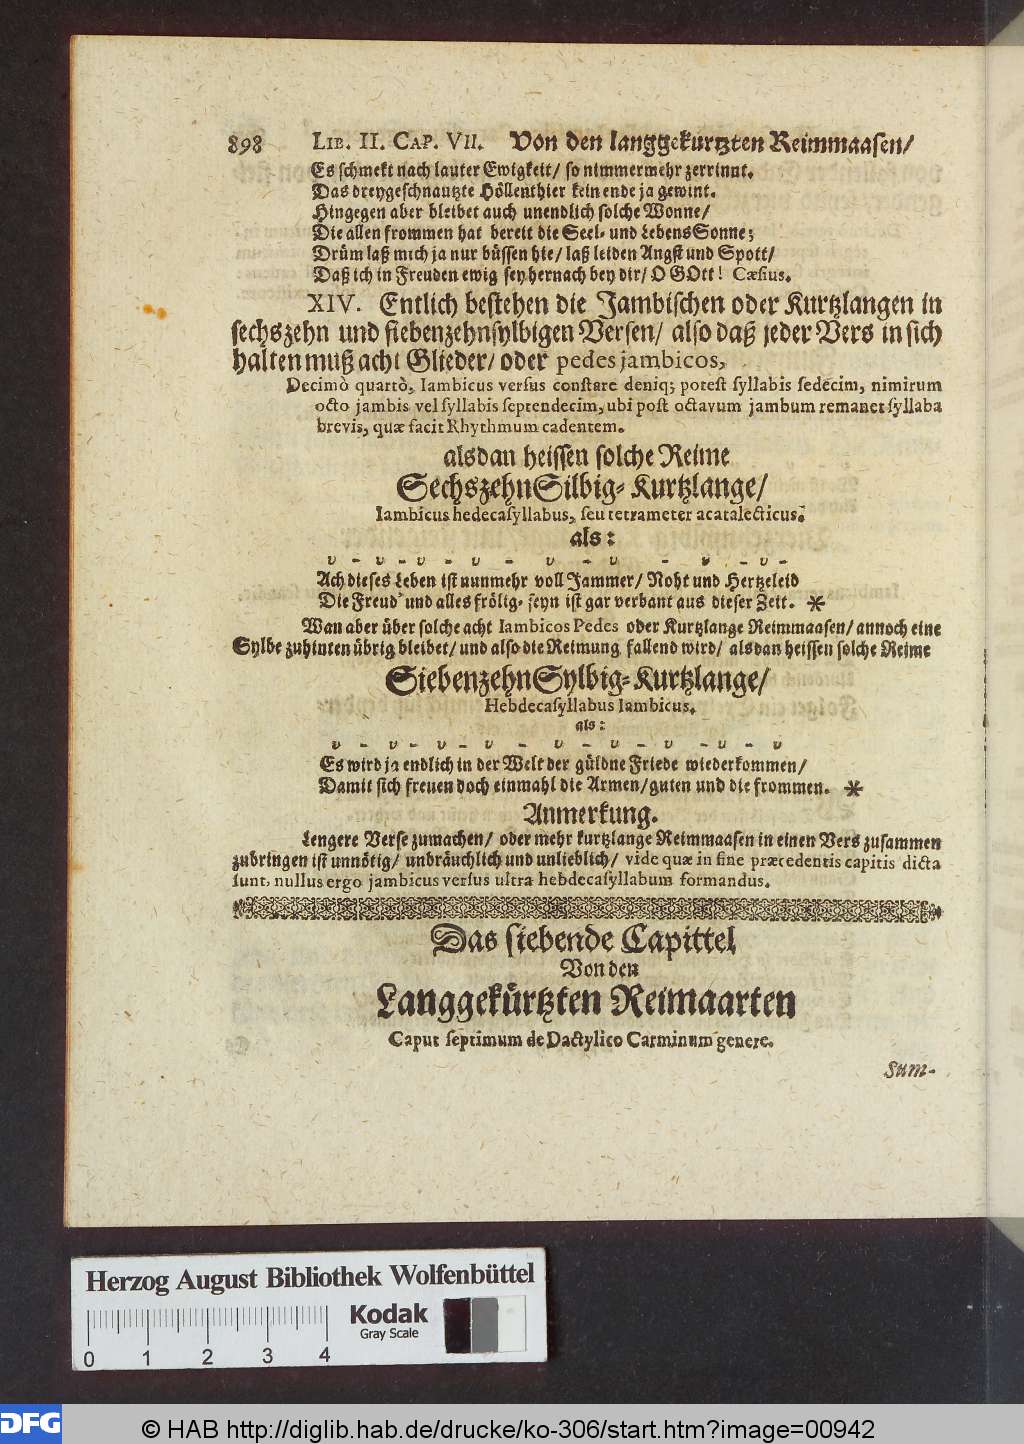 898 LIB. II. CAP. VII. Von den langgekurtzten Reimmaasen/
Es schmekt nach lauter Ewigkeit/ so nimmermehr zerrinnt.
Das dreygeschnautzte Höllenthier kein ende ja gewint.
Hingegen aber bleibet auch unendlich solche Wonne/
Die allen frommen hat bereit die Seel- und LebensSonne;
Drüm laß mich ja nur büssen hie/ laß leiden Angst und Spott/
Daß ich in Freuden ewig sey hernach bey dir/ O GOtt! Cæsius.
XIV. Entlich bestehen die Jambischen oder Kurtzlangen in
sechszehn und siebenzehnsylbigen Versen/ also daß jeder Vers in sich
halten muß acht Glieder/ oder pedes jambicos,
Decimò quartò, Iambicus versus constare deniq; potest syllabis sedecim, nimirum
octo jambis vel syllabis septendecim, ubi post octavum jambum remanet syllaba
brevis, quæ facit Rhythmum cadentem.
alsdan heissen solche Reime
SechszehnSilbig-Kurtzlange/
Iambicus hedecasyllabus, seu tetrameter acatalecticus.
als:
υ - υ - υ - υ - υ - υ - υ - υ -
Ach dieses Leben ist nunmehr voll Jammer/ Noht und Hertzeleid
Die Freud' und alles frölig-seyn ist gar verbant aus dieser Zeit. *
Wan aber über solche acht Iambicos Pedes oder Kurtzlange Reimmaasen/ annoch eine
Sylbe zuhinten übrig bleibet/ und also die Reimung fallend wird/ alsdan heissen solche Reime
SiebenzehnSylbig-Kurtzlange/
Hebdecasyllabus Iambicus.
als:
υ - υ - υ - υ - υ - υ - υ - υ - υ
Es wird ja endlich in der Welt der güldne Friede wiederkommen/
Damit sich freuen doch einmahl die Armen/ guten und die frommen. *
Anmerkung.
Lengere Verse zumachen/ oder mehr kurtzlange Reimmaasen in einen Vers zusammen
zubringen ist unnötig/ unbräuchlich und unlieblich/ vide quæ in fine præcedentis capitis dicta
sunt, nullus ergo jambicus versus ultra hebdecasyllabum formandus.
Das siebende Capittel
Von den
Langgekürtzten Reimaarten
Caput septimum de Dactylico Carminum genere.
Sum-
Herzog August Bibliothek Wolfenbüttel
Kodak
Gray Scale
0 1 2 3 4
DFG
© HAB http://diglib.hab.de/drucke/ko-306/start.htm?image=00942